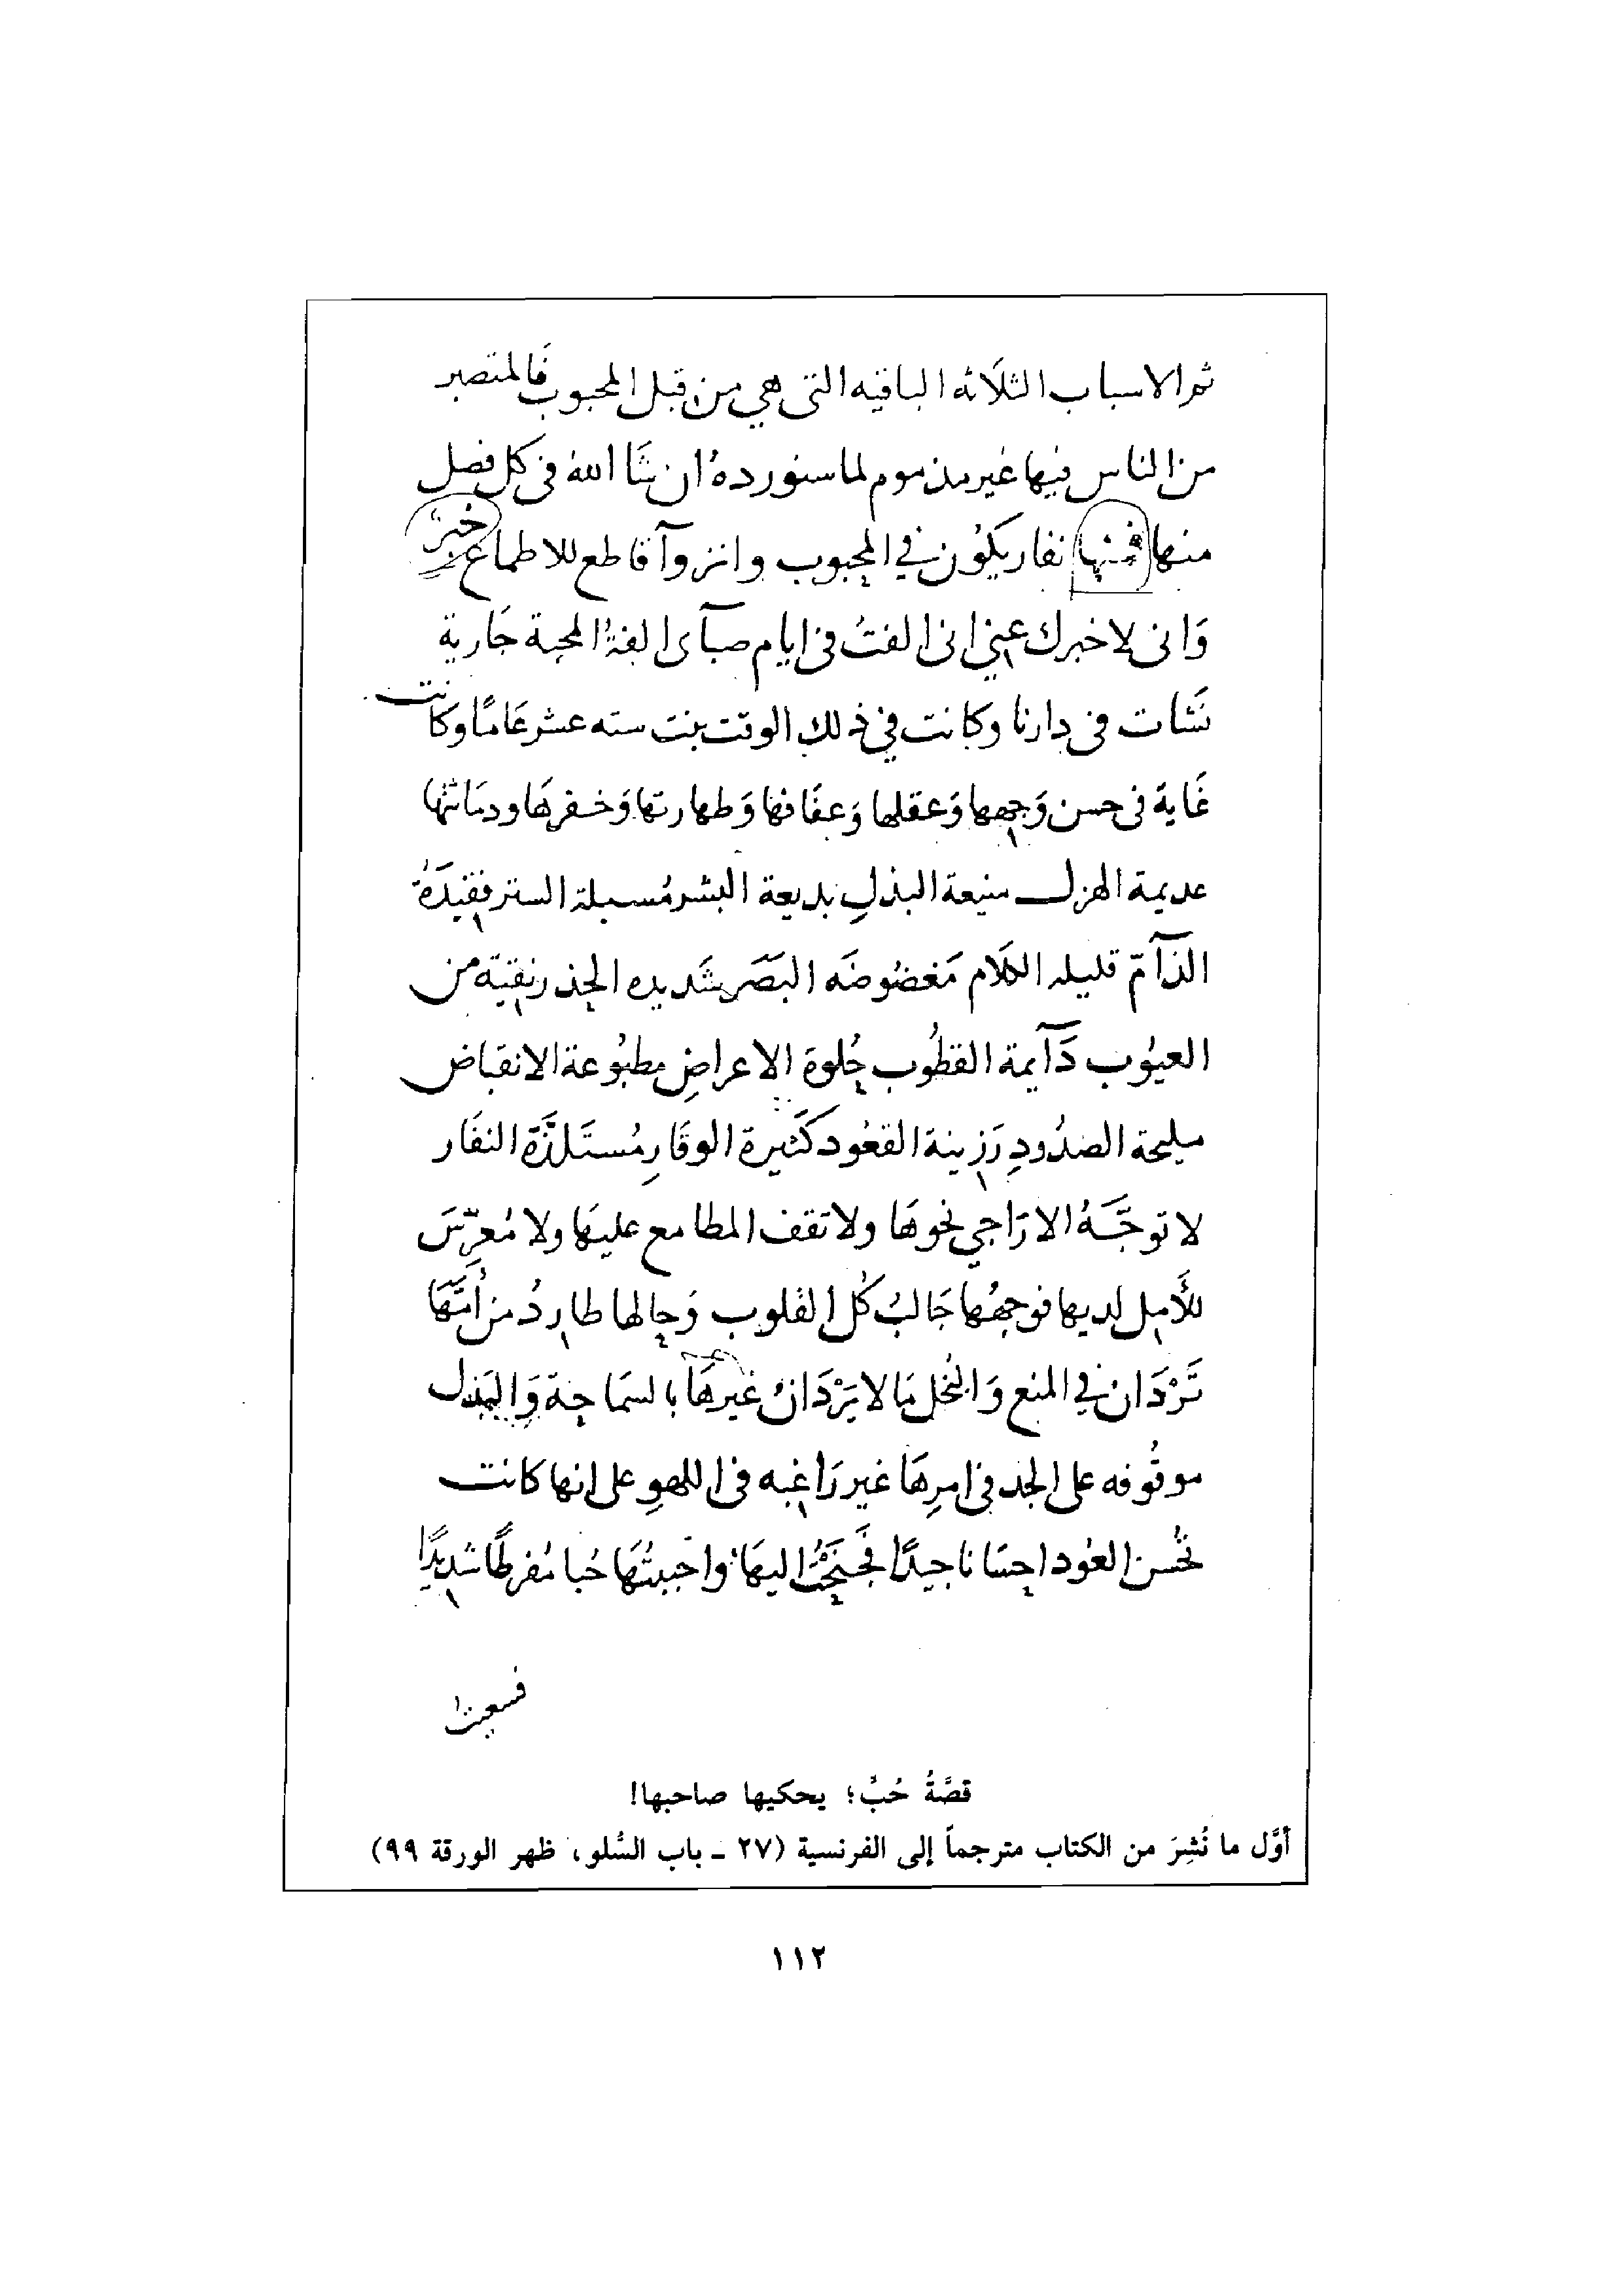 ثم الاسباب الثلاثه الباقيه التى هي من قبل المحبوب فالمتصبر
من الناس فيها غير مذموم لما سنورده ان شَا الله فى كل فصل
منها فمنها نفار يكون في المحبوب وانزوآ قاطع للاطماع خبر
وَانى لاخبرك عني انى الفتُ فى ايام صبآى الفةُ المحبة جَارية
نَشات فى دارنا وكانت في ذلك الوقت بنت سته عشر عَامًا وكانت
غَاية فى حسن وَجهها وَعقلها وَعفَافها وَطهارتها وَخفرهَا ودمَاثتها
عديمة الهزل منيعة البذلِ بديعة البشر مُسبلة الستر فقيدَة
الذآمّ قليله الكلَام مَغضُوضَه البَصَر شَديده الحِذر نقية من
العيُوب دَآيمة القطُوب حُلوة الاعراضِ مطبُوعة الانقبَاض
مليحة الصدُودِ رَزينة القعُود كَثيرة الوقَارِ مُستَلذَّة النفَار
لا توجَّهُ الارَاجي نحوهَا ولا تقف المطامع عليهَا ولا مُعرّسَ
للأَمل لديها فوجهُها جَالبُ كُل القلوب وَحالها طاردُ من أَمَّهَا
تَزْدَان في المنع وَالبُخل مَا لا يَزْدَانُ غيرهَا بالسمَاحة وَالبَذل
موقُوفه على الجد فى امرِهَا غير رَاغبه فى اللهوِ على انها كانت
تُحسن العُود احسَانا جيدًا فَجَنَحْتُ اليهَا واحببتُهَا حُبا مُفرطًا شديدًا
فسعيت
قصَّةُ حُبّ؛ يحكيها صاحبها!
أوَّل ما نُشِرَ من الكتاب مترجماً إلى الفرنسية (٢٧ ـ باب السُّلو، ظهر الورقة ٩٩)
١١٢